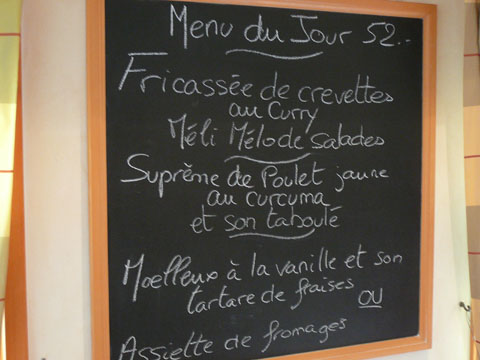 Menu du Jour 52.-
Fricassée de crevettes
au curry
Méli Mélo de salades
Suprême de Poulet jaune
au curcuma
et son taboulé
Moelleux à la vanille et son
tartare de fraises
ou
Assiette de fromages